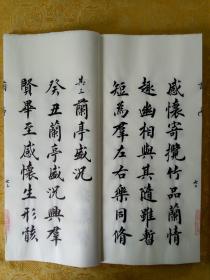 感懷寄攬竹品蘭情
趣幽相與其隨雖暫
短為羣左右樂同脩
其二蘭亭盛況
癸丑蘭亭盛況興群
賢畢至感懷生形骸